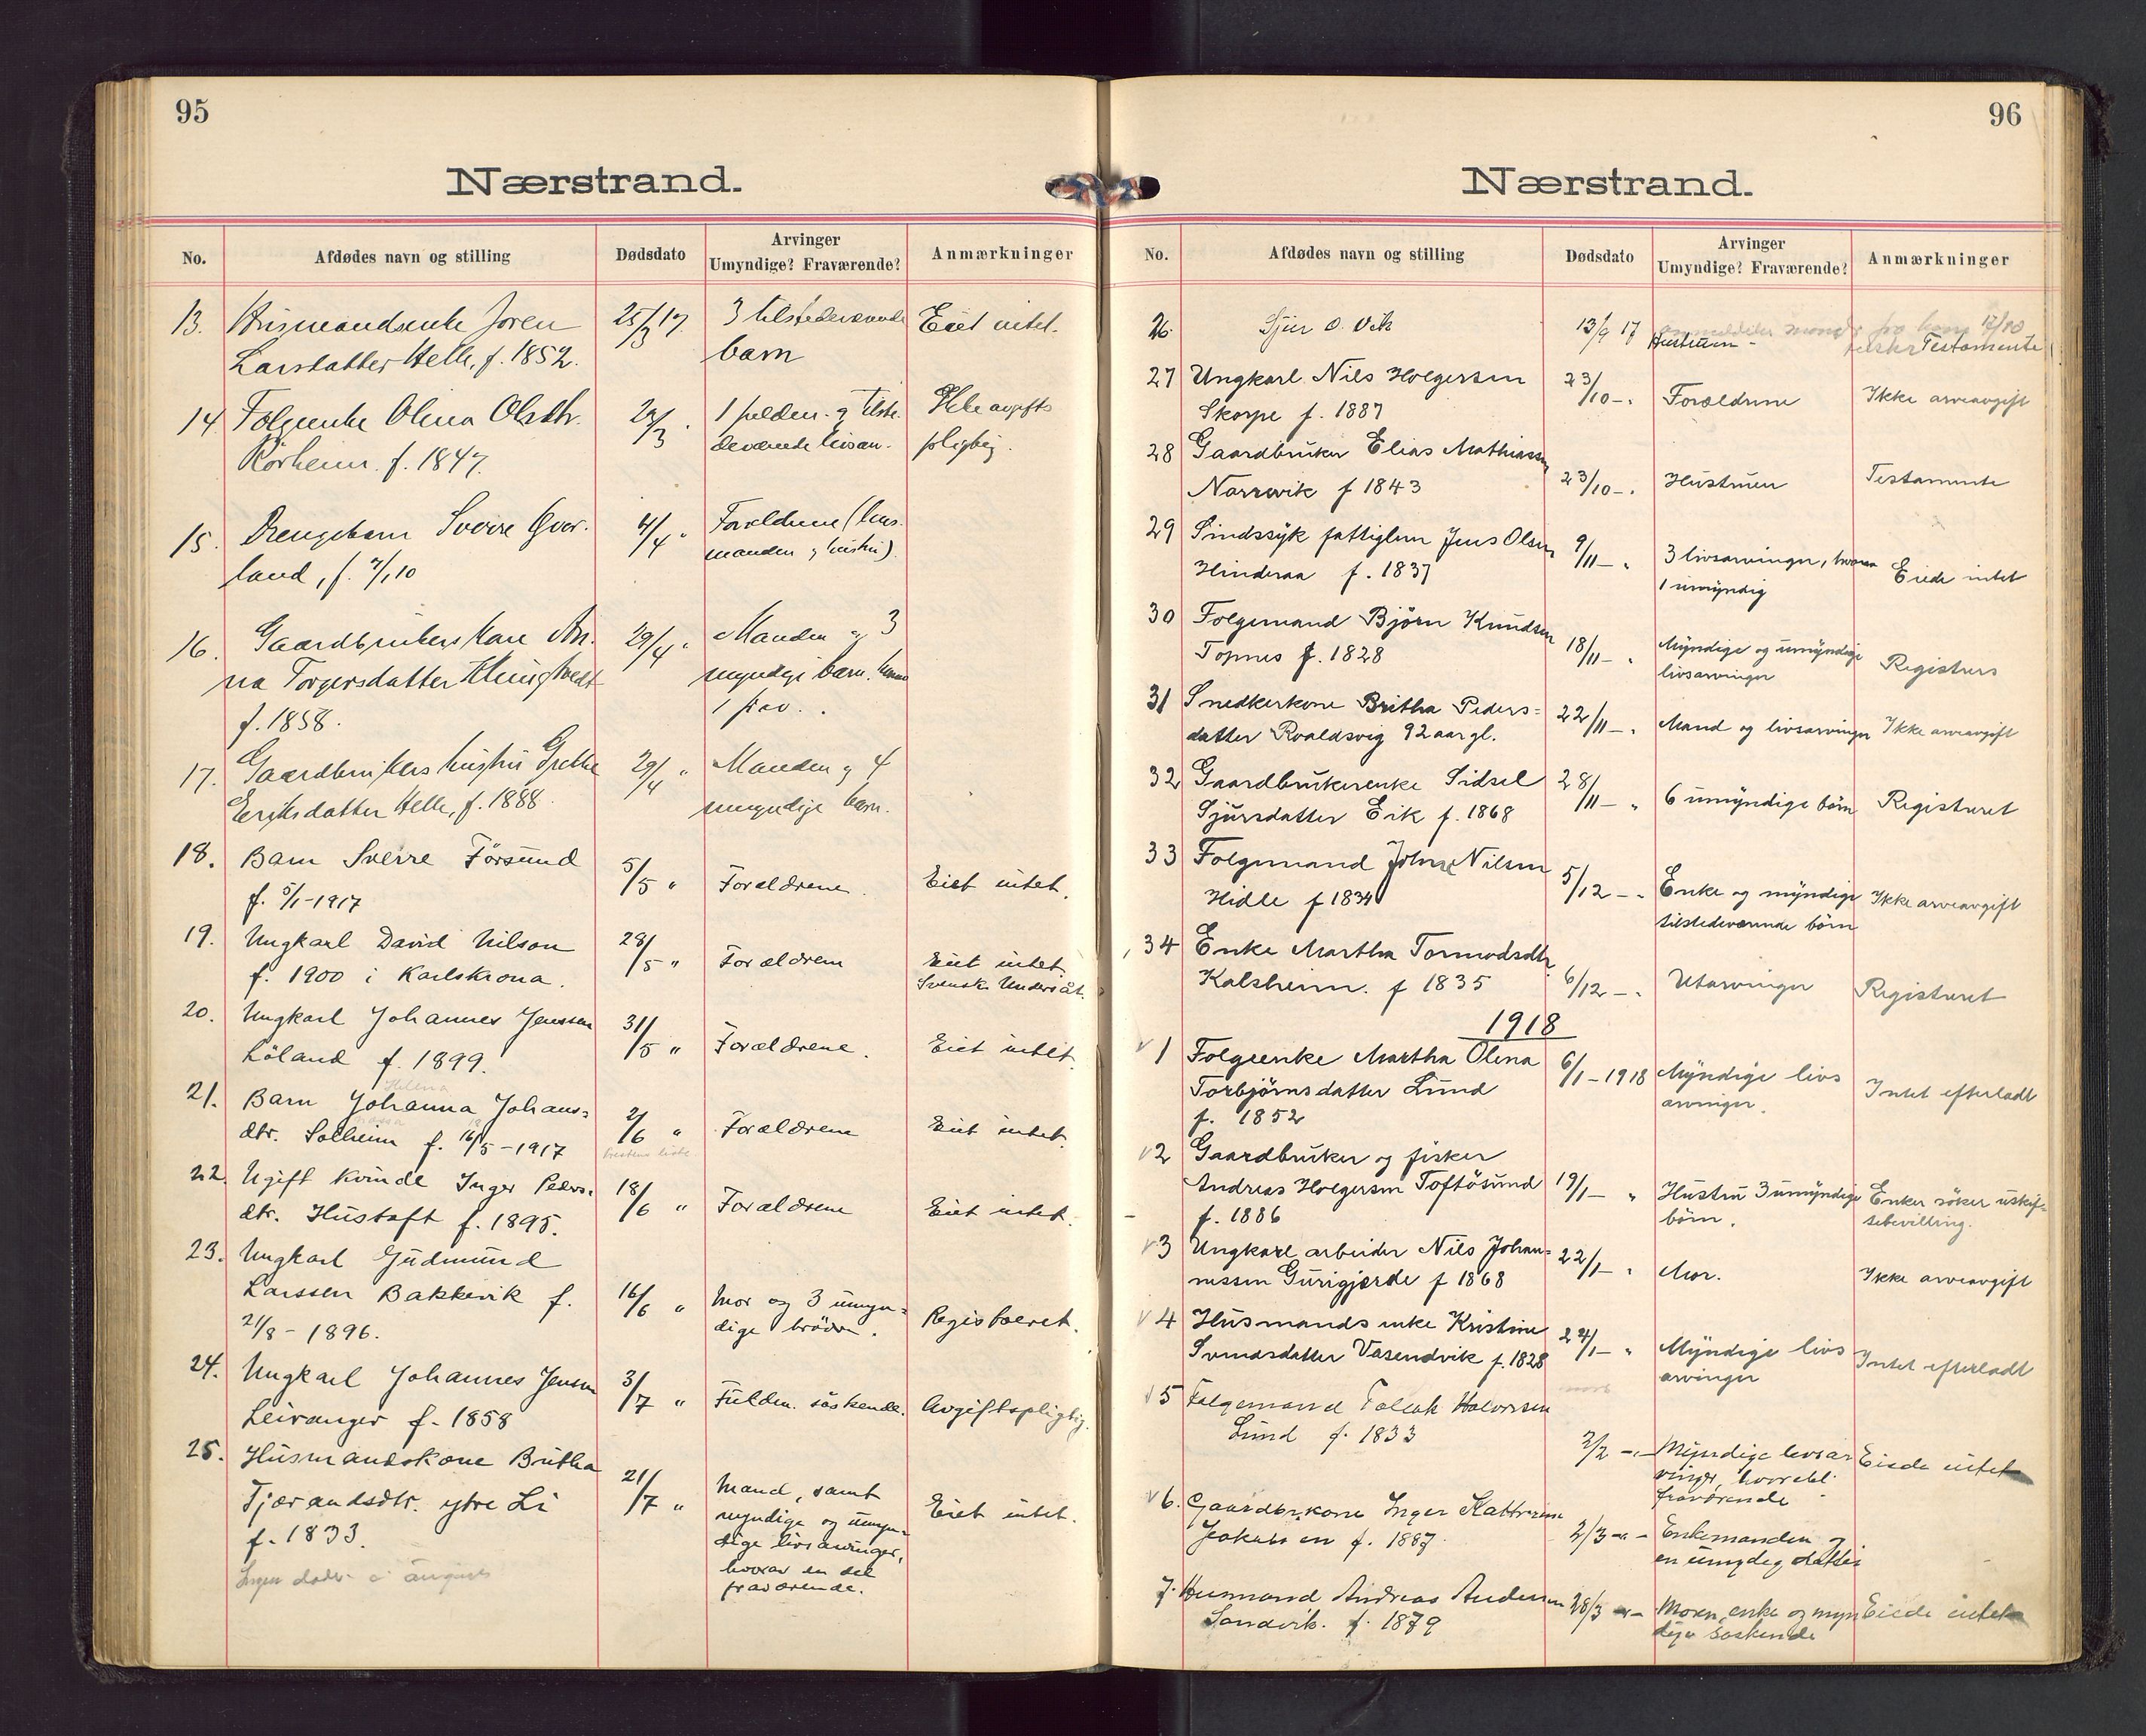 95
Nærstrand.
No. Afdødes navn og stilling Dødsdato Arvinger Umyndige? Fraværende? Anmærkninger
13. Husmandsenke Joren 25/3 17 3 tilstedeværende Eiet intet.
Larsdatter Helle, f. 1852. barn
14. Folgeenke Olina Olsdtr. 29/3 1 fulden. og tilste- Ikke avgifts
Rörheim. f. 1847. deværende livsarv. pligtig.
15. Drengebarn Sverre Qver- 4/4 " Forældrene (hus-
land, f. 7/1 10 manden og hustru).
16. Gaardbrukers kone An- 29/4 " Manden og 3
na Torgersdatter myndige barn, hvorav
f. 1858. 1 frav.
17. Gaardbrukers hustru Grethe 29/4 " Manden og 4
Eriksdatter Helle, f. 1888. umyndige barn.
18. Barn Sverre Försund 5/5 " Forældrene. Eiet intet.
f. 5/1-1917
19. Ungkarl David Nilson 28/5 " Forældrene Eiet intet.
f. 1900 i Karlskrona. Svensk Undersåt.
20. Ungkarl Johannes Jenssen 31/5 " Forældrene. Eiet intet.
Löland f. 1899.
Helena
21. Barn Johanna Johans- 2/6 " Forældrene Eiet intet.
dtr. Solheim f. 16/5-1917
22. Ugift kvinde Inger Peders- 18/6 " Forældrene Eiet intet.
dtr. Hustoft f. 1895.
23. Ungkarl Gudmund
Larssen Bakkevik f. 16/6 " Mor og 3 umyn- Registreret.
21/8-1896. dige brödre.
24. Ungkarl Johannes Jensen 3/7 " Fulden. söskende. Avgiftspligtig.
Leiranger f. 1858
25. Husmandskone Britha
Tjærandsdtr. ytre Li 21/7 " Mand, samt Eiet intet.
f. 1833. myndige og umyn-
dige livsarvinger,
hvorav en del
fraværende.
Ingen döde i august
96
Nærstrand.
No. Afdødes navn og stilling Dødsdato Arvinger Umyndige? Fraværende? Anmærkninger
26. Sjur O. Vik 13/9 17 Hustruen - Testamente
27 Ungkarl Nils Holgersen 23/10 -. Forældrene Ikke arveavgift
Skorpe f. 1887
28 Gaardbruker Elias Mathiassen
Narravik f 1843 23/10 -. Hustruen Testamente
29 Sindssyk fattiglem Jens Olsen 9/11 - " 3 livsarvinger, hvorav Eiede intet
Hinderaa f. 1837 1 umyndig
30 Folgemand Björn Knudsen 18/11 - " Myndige og umyndige Registrers
Topnes f. 1828 livsarvinger
31 Snedkerkone Britha Peders= 22/11 -. Mand og livsarvinger Ikke arveavgift
datter Roaldsvig 92 aar gl.
32 Gaardbrukerenke Sidsel 28/11 - " 6 umyndige börn Registreret
Sjursdatter Eik f. 1868
33 Folgemand John Nilsen 5/12 -. Enke og myndige Ikke arveavgift
Hidle f 1834 tilstedeværende börn
34 Enke Martha Tormodsdtr.
Kalsheim. f 1835 6/12 -. Utarvinger Registreret
1918
1 Folgeenke Martha Olena 6/1-1918 Myndige livs Intet efterladt
Torbjörnsdatter Lund arvinger.
f. 1852
2 Gaardbruker og fisker
Andreas Holgersen Toftösund 19/1 - " Hustru 3 umyndige Enken söker uskif-
f. 1886 börn. tebevilling.
3 Ungkarl arbeider Nils Johan= 22/1 - " Mor. Ikke arveavgift
nessen Gurigjerde f 1868
4 Husmands enke Kristine 24/1 - " Myndige livs Intet efterladt
Svendsdatter Vasendvik f. 1828 arvinger
5 Folgemand Tollak Halvorsen
Lund f. 1833 2/2 - Myndige livsar Eiede intet
vinger, hvorabl.
fraværende
6. Gaardbr.kone Inger Kathrine
Jakobsen f. 1887. 2/3 - Enkemanden og
en umyndig datter
7. Husmand Andreas Andersen 28/3 - Moren, enke og myn Eiede intet
Sandvik. f. 1879 dige söskende